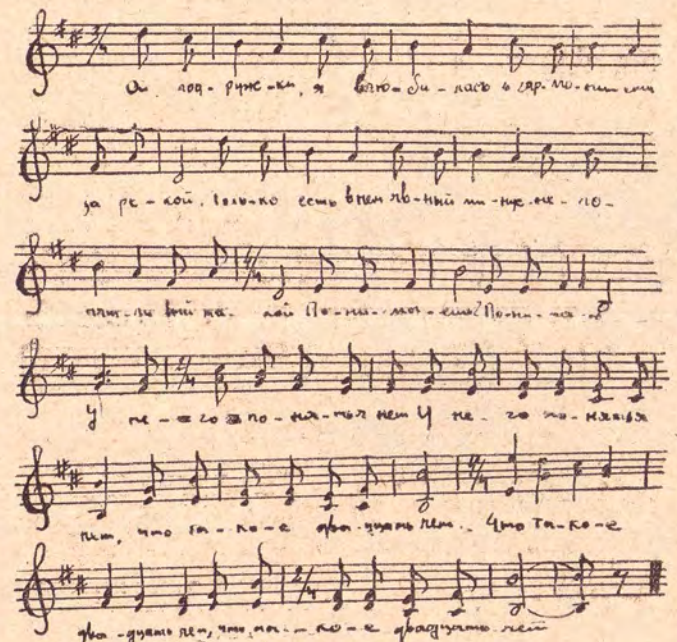 3/4
А под-руж-ки, я влю-би-лась в гар-мо-нис-та
за ре-кой. Только есть в нем яв-ный ми-нус не-по-
нят-ли вый та-кой По-ни-ма-ешь? По-ни-ма-
У не-го по-ня-тья нет У не-го по-нятья
нет, что та-ко-е два-дцать лет. Что та-ко-е
два-дцать лет, что та-ко-е двадцать лет